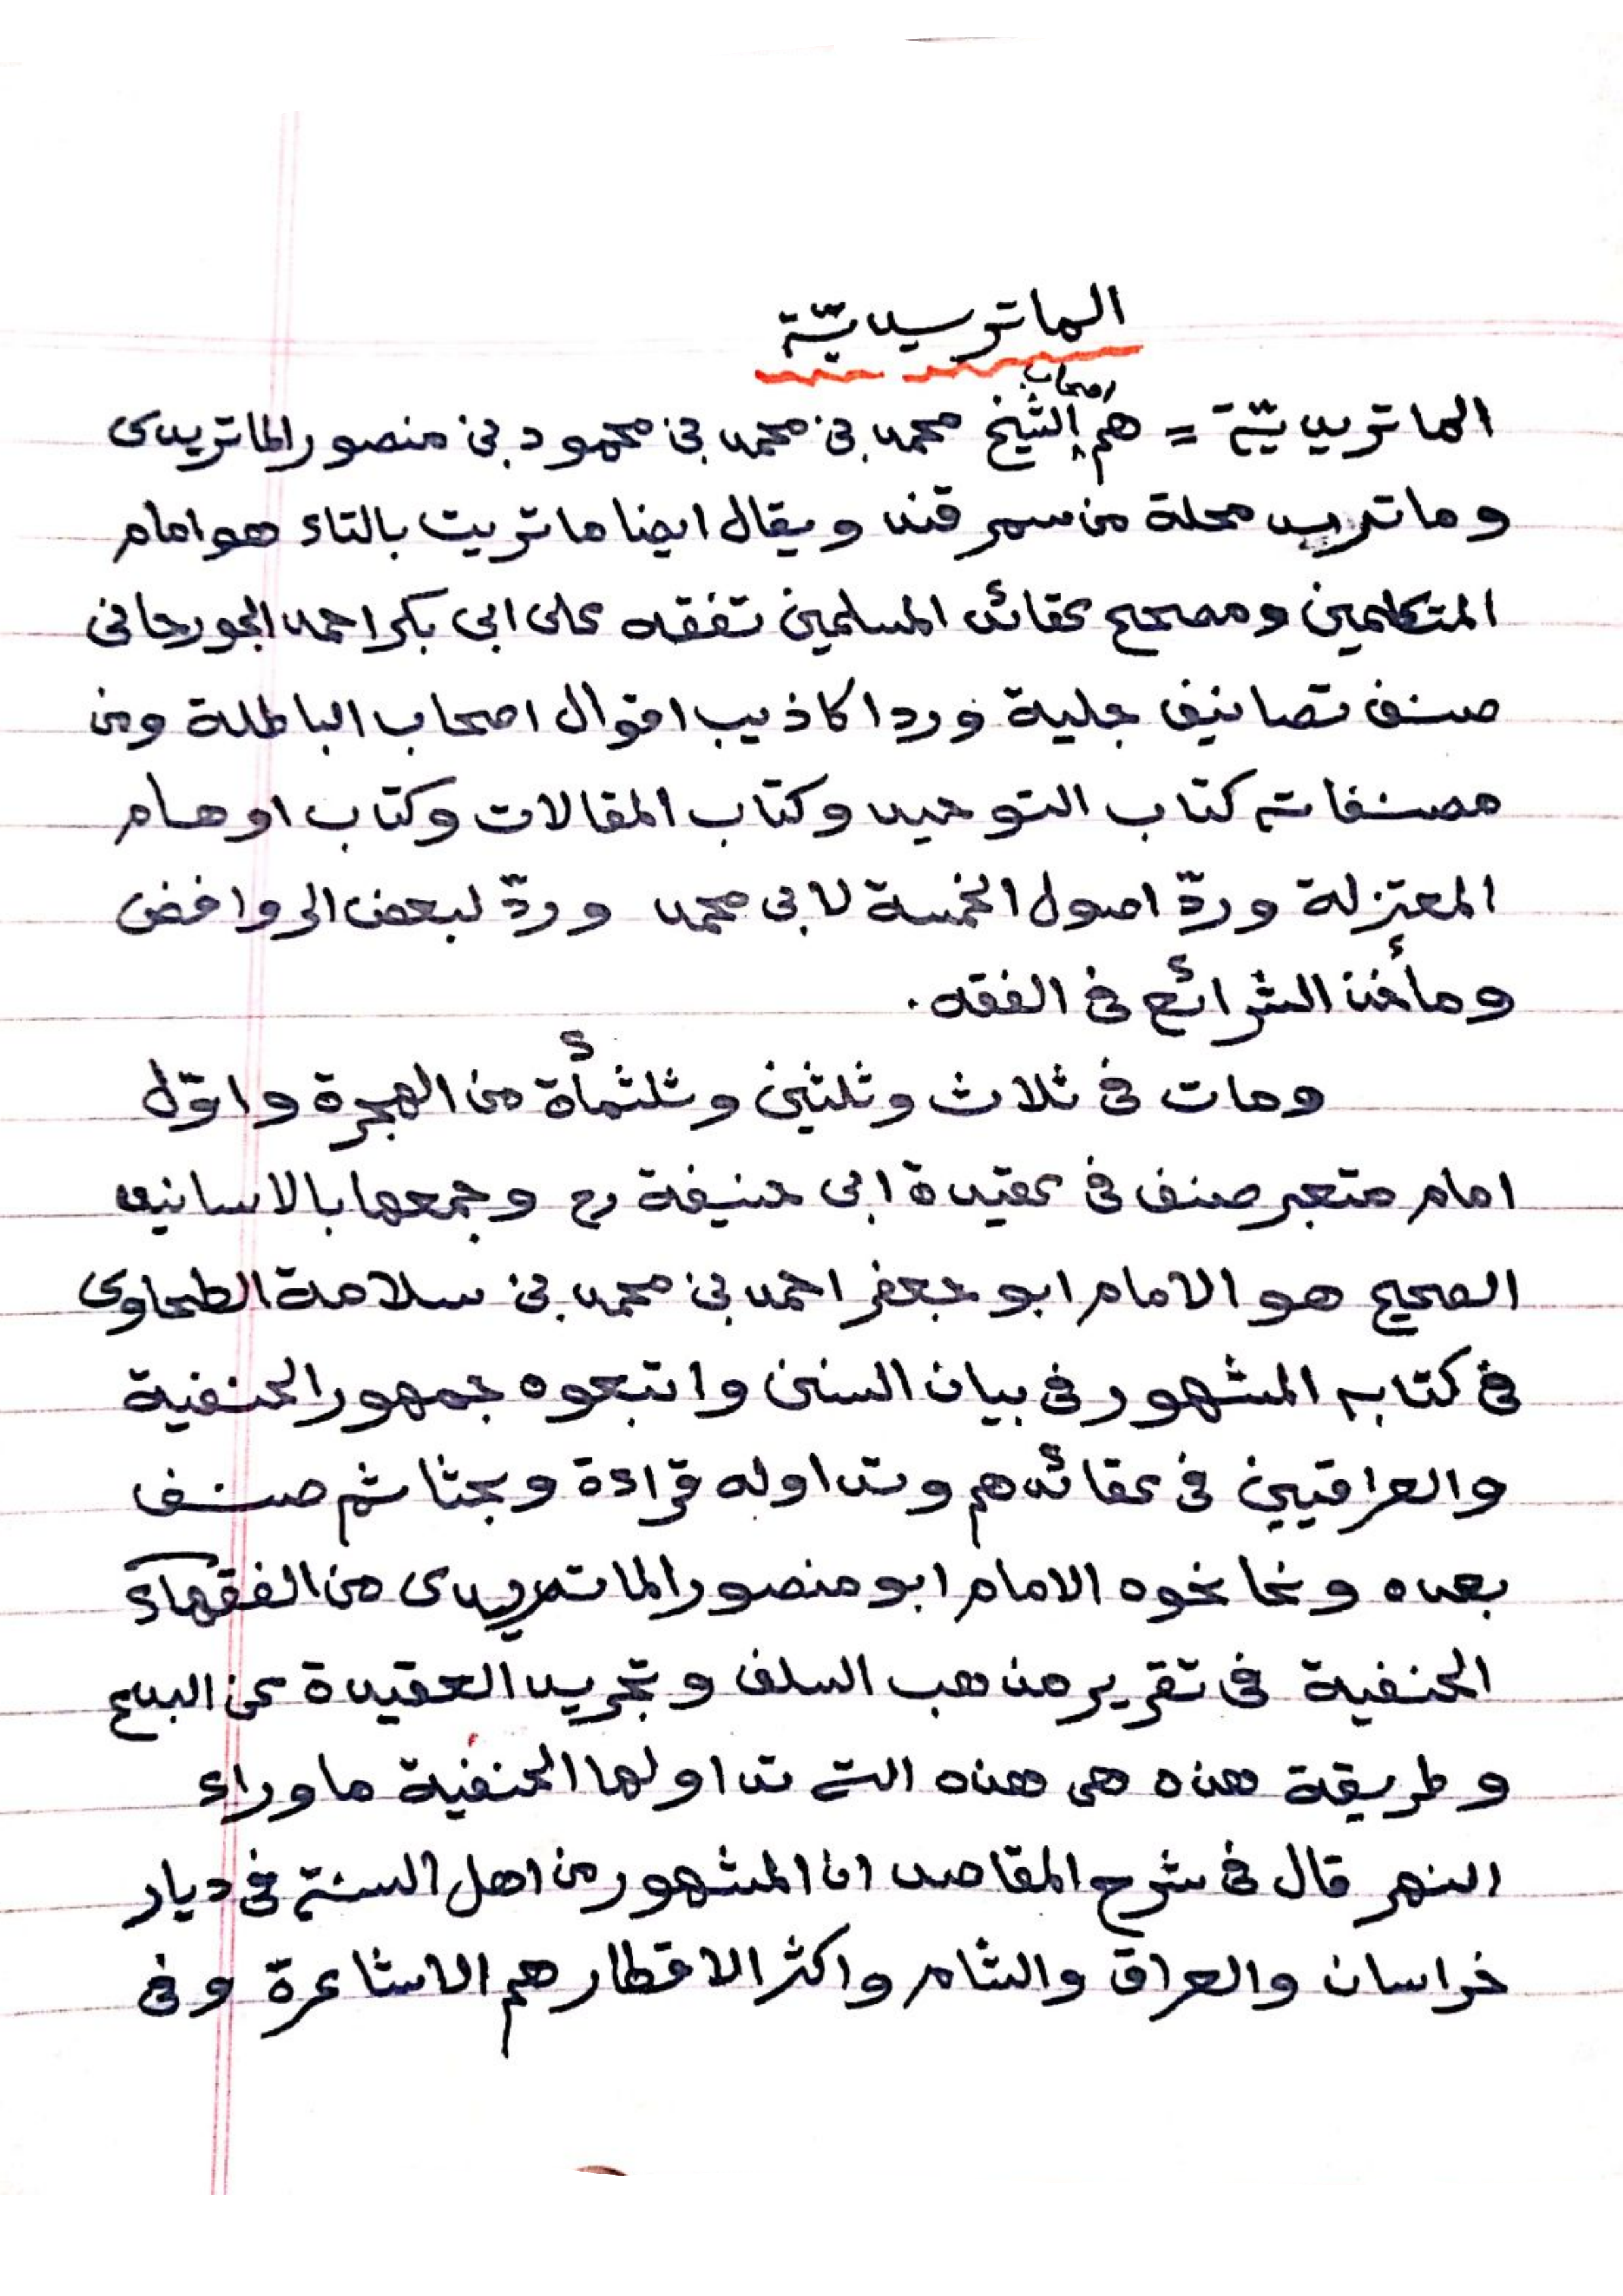 الماتريديّة
الماتريديّة = هم اصحاب الشيخ محمد بن محمد بن محمود بن منصور الماتريدى
وماتريد محلة من سمرقند ويقال ايضا ماتريت بالتاء هو امام
المتكلمين ومصحح عقائد المسلمين تفقه على ابى بكر احمد الجورجانى
صنف تصانيف جلية ورد اكاذيب اقوال اصحاب الباطلة ومن
مصنفاته كتاب التوحيد وكتاب المقالات وكتاب اوهام
المعتزلة وردّ اصول الخمسة لابى محمد وردّ لبعض الروافض
ومأخذ الشرائع فى الفقه.
ومات فى ثلاث وثلثين وثلثمأة من الهجرة واوّل
امام متعبر صنف فى عقيدة ابى حنيفة رح وجمعها بالاسانيد
الصحيح هو الامام ابو جعفر احمد بن محمد بن سلامة الطحاوى
فى كتابه المشهور فى بيان السنن واتبعوه جمهور الحنفية
والعراقيين فى عقائدهم وتداوله قراءة وبحثا ثم صنف
بعده ونحا نحوه الامام ابو منصور الماتريدى من الفقهاء
الحنفية فى تقرير مذهب السلف وتجريد العقيدة عن البدع
وطريقة هذه هى هذه التى تداولها الحنفية ماوراء
النهر قال فى شرح المقاصد ان المشهور من اهل السنة فى ديار
خراسان والعراق والشام واكثر الاقطار هم الاشاعرة وفى